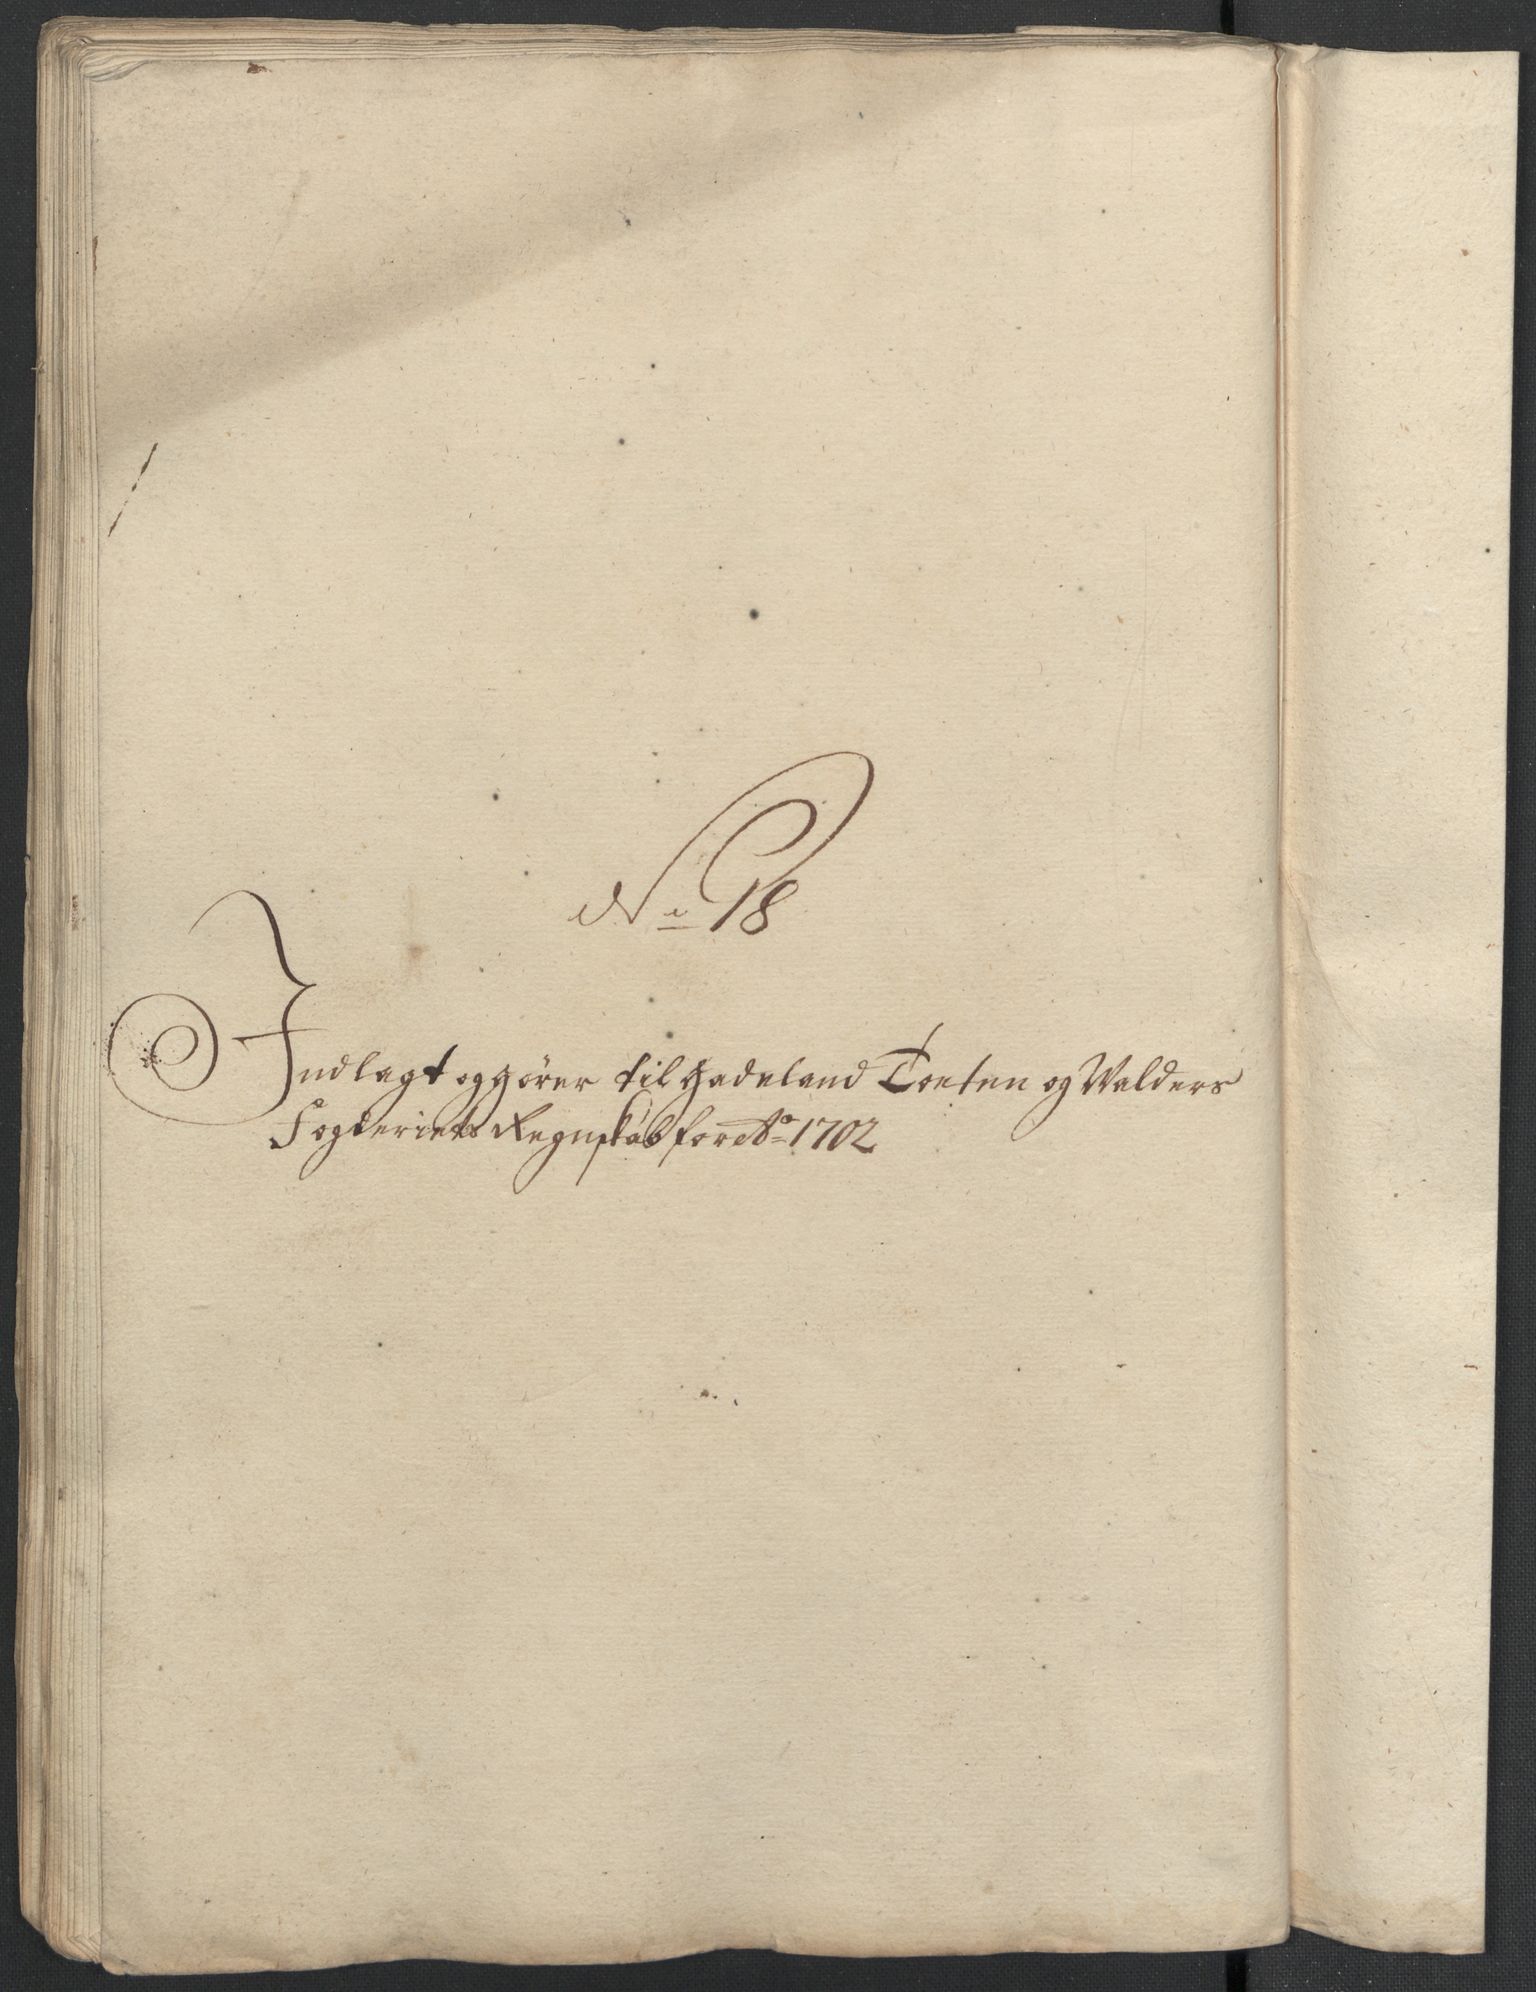 No 18
Indlagt og hører til Hadeland Toeten og Walders
Fogderiets Regnskab for Ao 1702